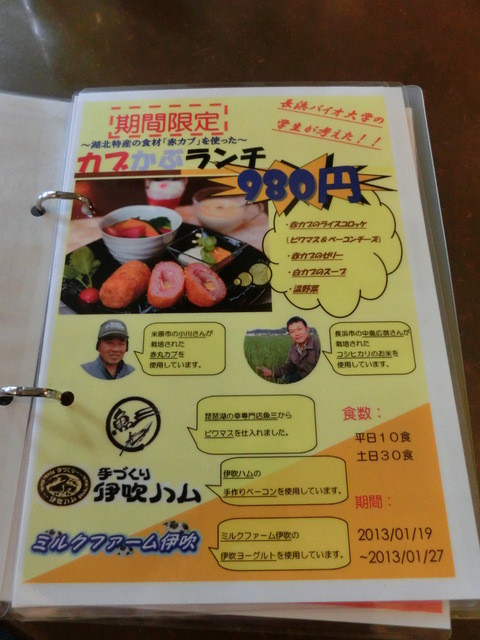 期間限定
長浜バイオ大学の
学生が考えた！！
～湖北特産の食材「赤カブ」を使った～
カブかぶランチ
980円
・赤カブのライスコロッケ
（ビワマス＆ベーコンチーズ）
・赤カブのゼリー
・白カブのスープ
・温野菜
米原市の小川さんが
栽培された
赤丸カブを
使用しています。
長浜市の中島広樹さんが
栽培された
コシヒカリのお米を
使用しています。
魚三
琵琶湖の幸専門店魚三から
ビワマスを仕入れました。
食数：
平日10食
土日30食
手づくり
伊吹ハム
伊吹ハムの
手作りベーコンを使用しています。
期間：
2013/01/19
~2013/01/27
ミルクファーム伊吹
ミルクファーム伊吹の
伊吹ヨーグルトを使用しています。